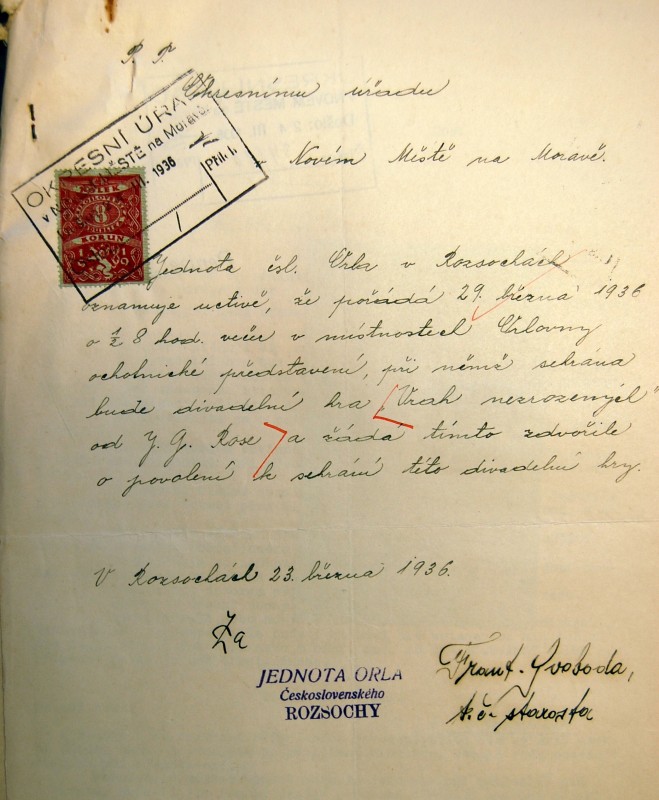 P. P.
Okresnímu úřadu
v Novém Městě na Moravě.
OKRESNÍ ÚŘAD
v NOVÉM MĚSTĚ na Moravě.
III. 1936
Příl.
KOLEK
8
KORUN
1919
Jednota čsl. Orla v Rozsochách
oznamuje uctivě, že pořádá 29. března 1936
o ½ 8 hod. večer v místnostech Orlovny
ochotnické představení, při němž sehrána
bude divadelní hra „Vrah nezrozemýel"
od J. G. Rose a žádá tímto zdvořile
o povolení k sehrání této divadelní hry.
V Rozsochách 23. března 1936.
Za
JEDNOTA ORLA
Československého
ROZSOCHY
Frant. Svoboda,
t.č. starosta